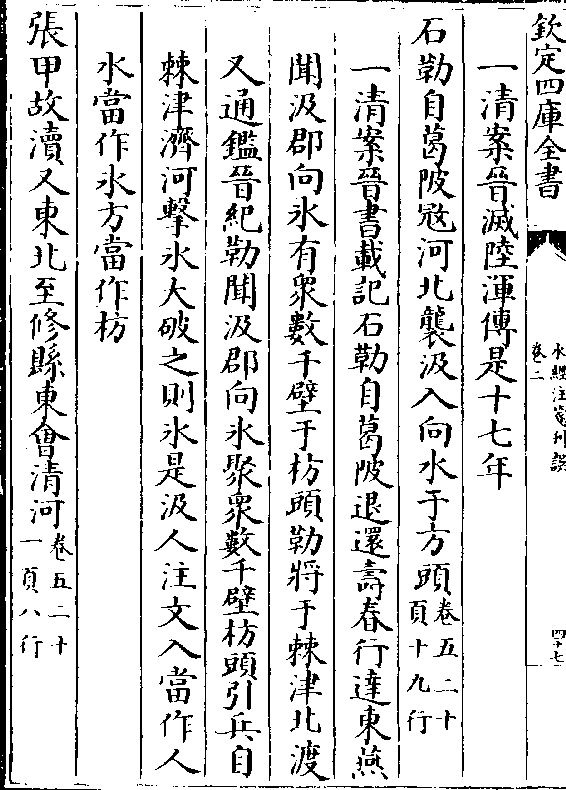 欽定四庫全書
水經注箋刊誤
卷二
四十七
一清案晉滅陸渾傳是十七年
石勒自葛陂㓂河北襲汲入向水于方頭卷五二十頁十九行
一清案晉書載記石勒自葛陂退還壽春行達東燕
聞汲郡向氷有衆數千壁于枋頭勒將于棘津北渡
又通鑑晉紀勒聞汲郡向氷聚衆數千壁枋頭引兵自
棘津濟河擊氷大破之則氷是汲人注文入當作人
水當作氷方當作枋
張甲故瀆又東北至修縣東會清河卷五二十一頁八行